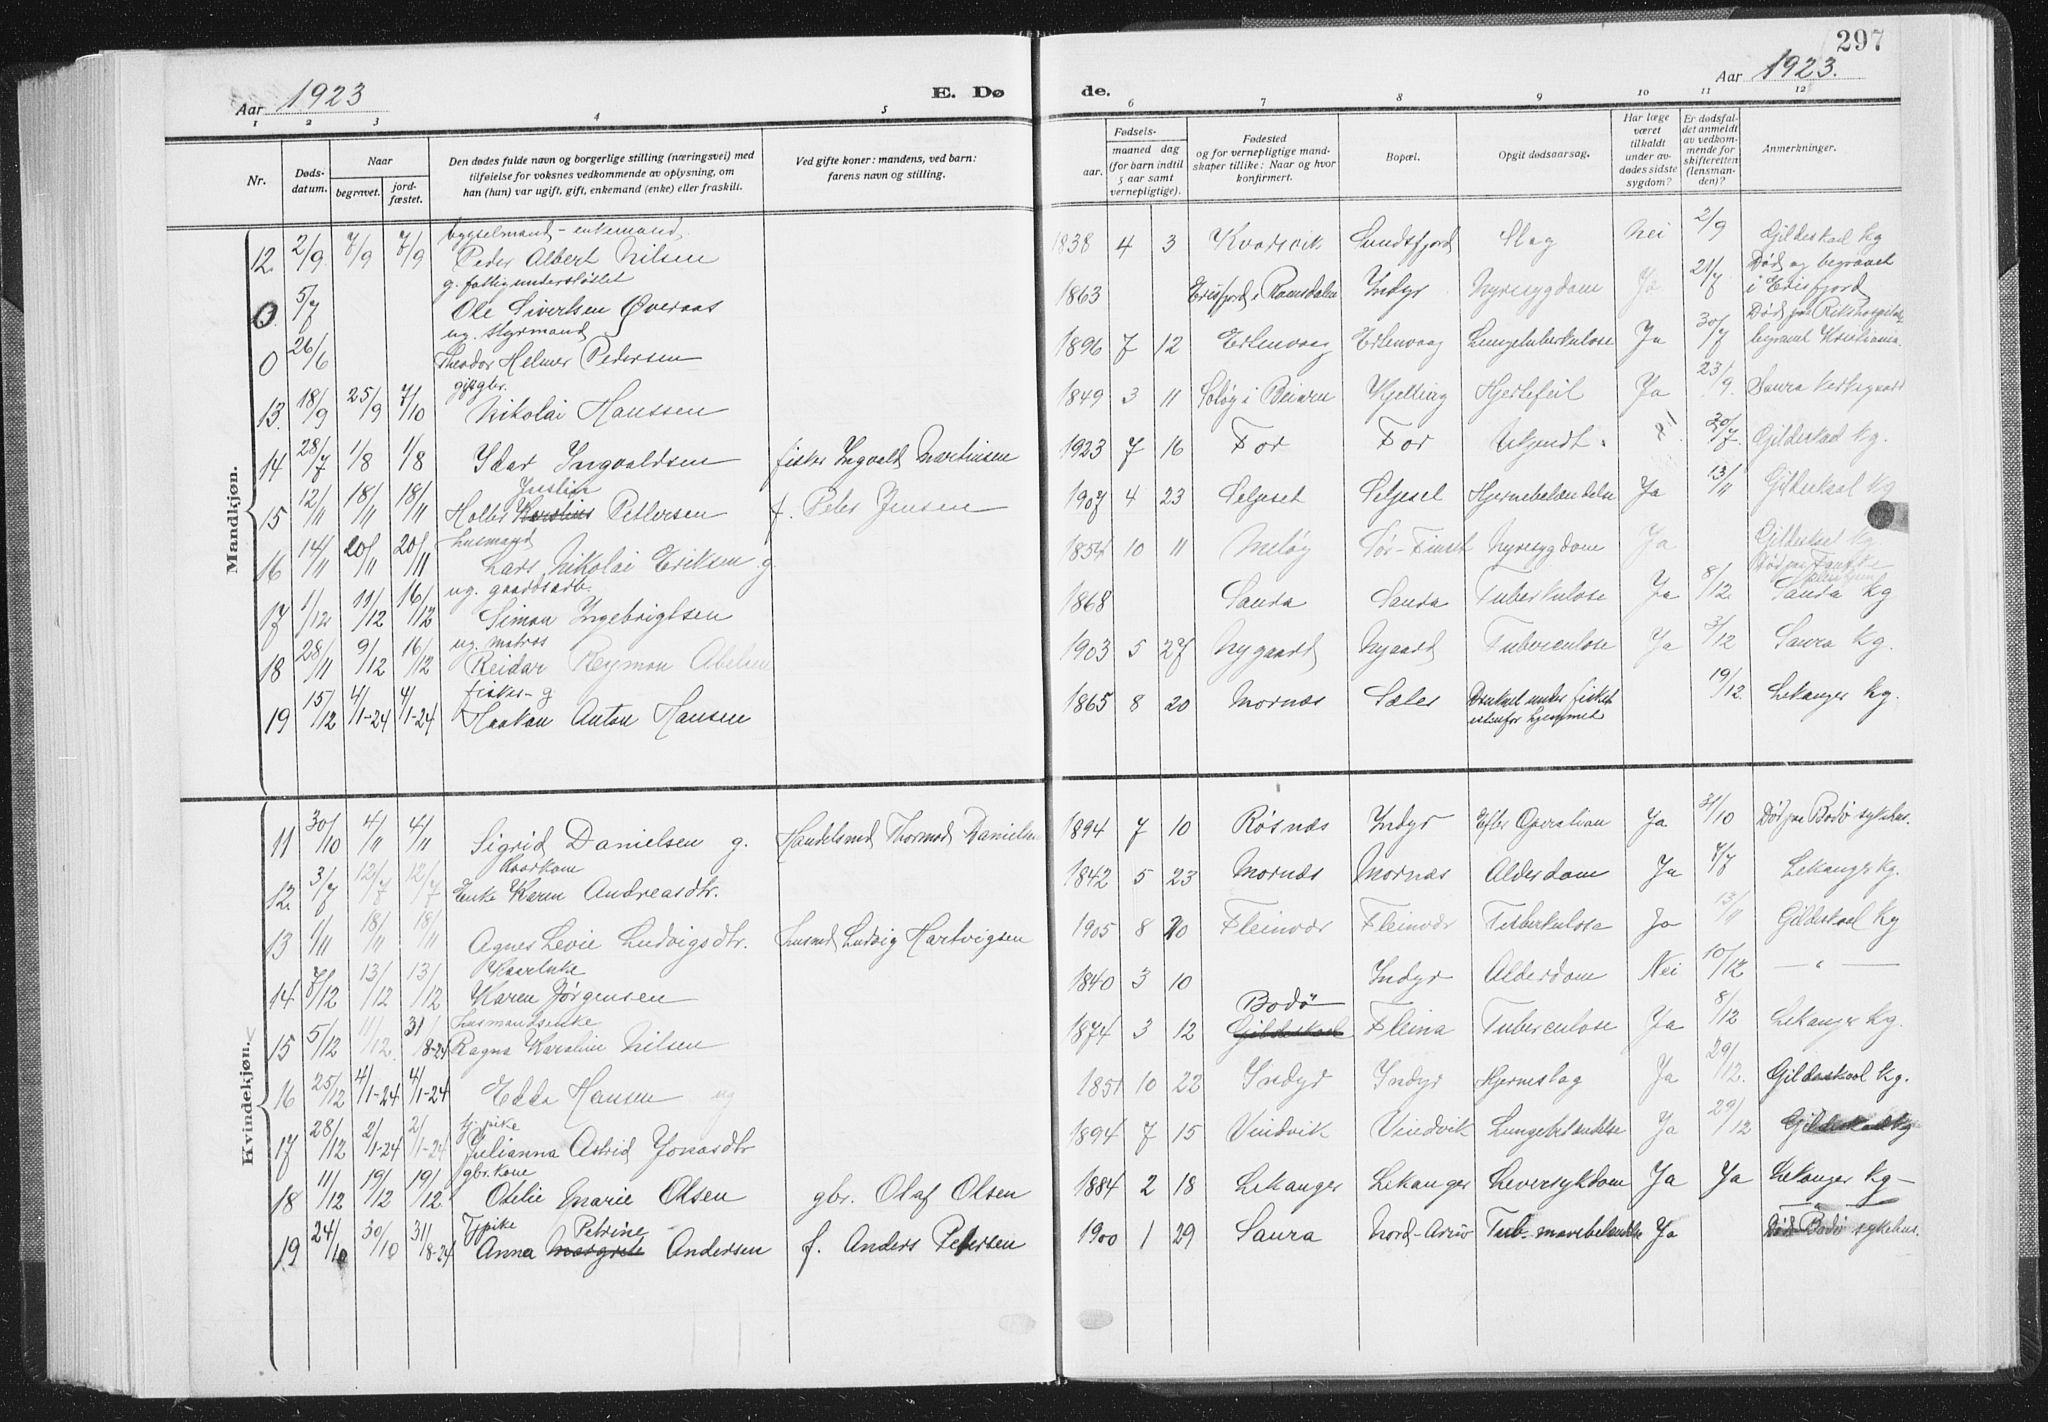 297
Aar 1923 E. Dø de. Aar 1923.
1 2 3 4 5 6 7 8 9 10 11 12
Nr. Døds-datum. Naar begravet. jord-fæstet. Den dødes fulde navn og borgerlige stilling (næringsvei) med tilføielse for voksnes vedkommende av oplysning, om han (hun) var ugift, gift, enkemand (enke) eller fraskilt. Ved gifte koner: mandens, ved barn: farens navn og stilling. Fødsels- aar. maaned dag (for barn indtil 5 aar samt vernepligtige). Fødested og for vernepligtige mand-skaper tillike: Naar og hvor konfirmert. Bopæl. Opgit dødsaarsag. Har læge været tilkaldt under av-dødes sidste sygdom? Er dødsfal-det anmeldt av vedkom-mende for skifteretten (lensman-den)? Anmerkninger.
Mandkjøn.
bygselmand - enkemand
12. 2/9 7/9 7/9 Peder Albert Nilsen 1838 4 3 Kvarsvik Sundsfjord Slag Nei 2/9 Gildeskaal kg
g. fattigunderstøttet
0. 5/7 Ole Sivertsen Øveraas 1863 Erisfjord i Romsdalen Indyr Nyresygdom Ja 21/7 Død og begravet i Erisfjord
ug. styrmand
0 26/6 Theodor Helmer Pedersen 1896 7 12 Ertenvaag Ertenvaag Lungetuberkulose Ja 30/7 Død paa Rikshospital begravet Kristiania.
gift gbr.
13. 18/9 25/9 7/10 Nikolai Hanssen 1849 3 11 Soløy i Beiarn Kjelling Hjertefeil Ja 23/9. Saura kirkegaard
14 28/7 1/8 1/8 Ydar Ingvaldsen fisker Ingvald Martinsen 1923 7 16 For For Ukjendt. 30/7. Gildeskaal kg.
Justin
15 12/11 18/11 18/11 Holter Pettersen f. Peter Jensen 1907 4 23 Seljeset Seljesel Hjernebetændelse Ja 13/11 Gildeskaal kg
husmand
16 14/11 20/11 20/11 Lars Nikolai Eriksen g 1854 10 11 Meløy Sør-Finset Nyresygdom Ja Gildeskaal kg
ug. gaardsarb. Død paa Fauske
17 1/12 11/12 16/12 Simon Ingebrigtsen 1868 Sanda Sanda Tuberkulose Ja 8/12. Sanda kg
ug. matros
18 28/11 9/12 16/12 Reidar Reymon Abelsen 1903 5 27 Nygaard Nyaard Tuberculose Ja 3/12 Saura kg.
fisker - g
19 15/12 4/1-24 4/1-24 Haakon Anton Hansen 1865 8 20 Mornæs Sæter Druknet under fiske utenfor hjemmet 19/12. Lekanger kg.
Kvindekjøn.
11 30/10 4/11 4/11 Sigrid Danielsen g. Handelsmd Thormod Danielsen 1894 7 10 Røsnæs Indyr Efter Operation Ja 31/10 Død paa Bodø sykehus.
12. 3/7 12/7 12/7 Enke Karen Andreasdtr. 1842 5 23 Mornæs Mornæs Alderdom Ja 7/7 Lekanger kg.
13 1/11 18/11 18/11 Agnes Levie Ludvigsdtr. husmd Ludvig Hartvigsen 1905 8 20 Fleinvær Fleinvær Tuberkulose Ja 13/11 Gildeskaal kg
14 7/12 13/12 13/12 Karen Jørgensen 1840 3 10 Indyr Alderdom Nei 10/12 — " —
husmandsenke Bodø
15 5/12 11/12. 31/8-24 Ragna Karoline Nilsen 1874 3 12 Gildeskaal Fleina Tuberculose Ja 8/12 Lekanger kg.
16 25/12 4/1-24 4/1-24 Edda Hansen ug 1851 10 22 Indyr Indyr Hjerneslag Ja 29/12. Gildeskaal kg.
tj. pike
17 28/12 2/1-24 2/1-24 Julianna Astrid Jonasdtr 1894 7 15 Vindvik Vindvik Lungebetændelse Ja 29/12 Gildeskaal kg
gbr. kone
18 11/12 19/12 19/12 Otelie Marie Olsen gbr. Olaf Olsen 1884 2 18 Lekanger Lekanger Leversykdom Ja Ja Lekanger kg —
Tj pike Petrine
19 24/10 30/10 31/8-24 Anna Margrete Andersen f. Anders Petersen 1900 1 29 Saura Nord-Arnøy Tub. mavebetændelse Ja Død Bodø sykehus.